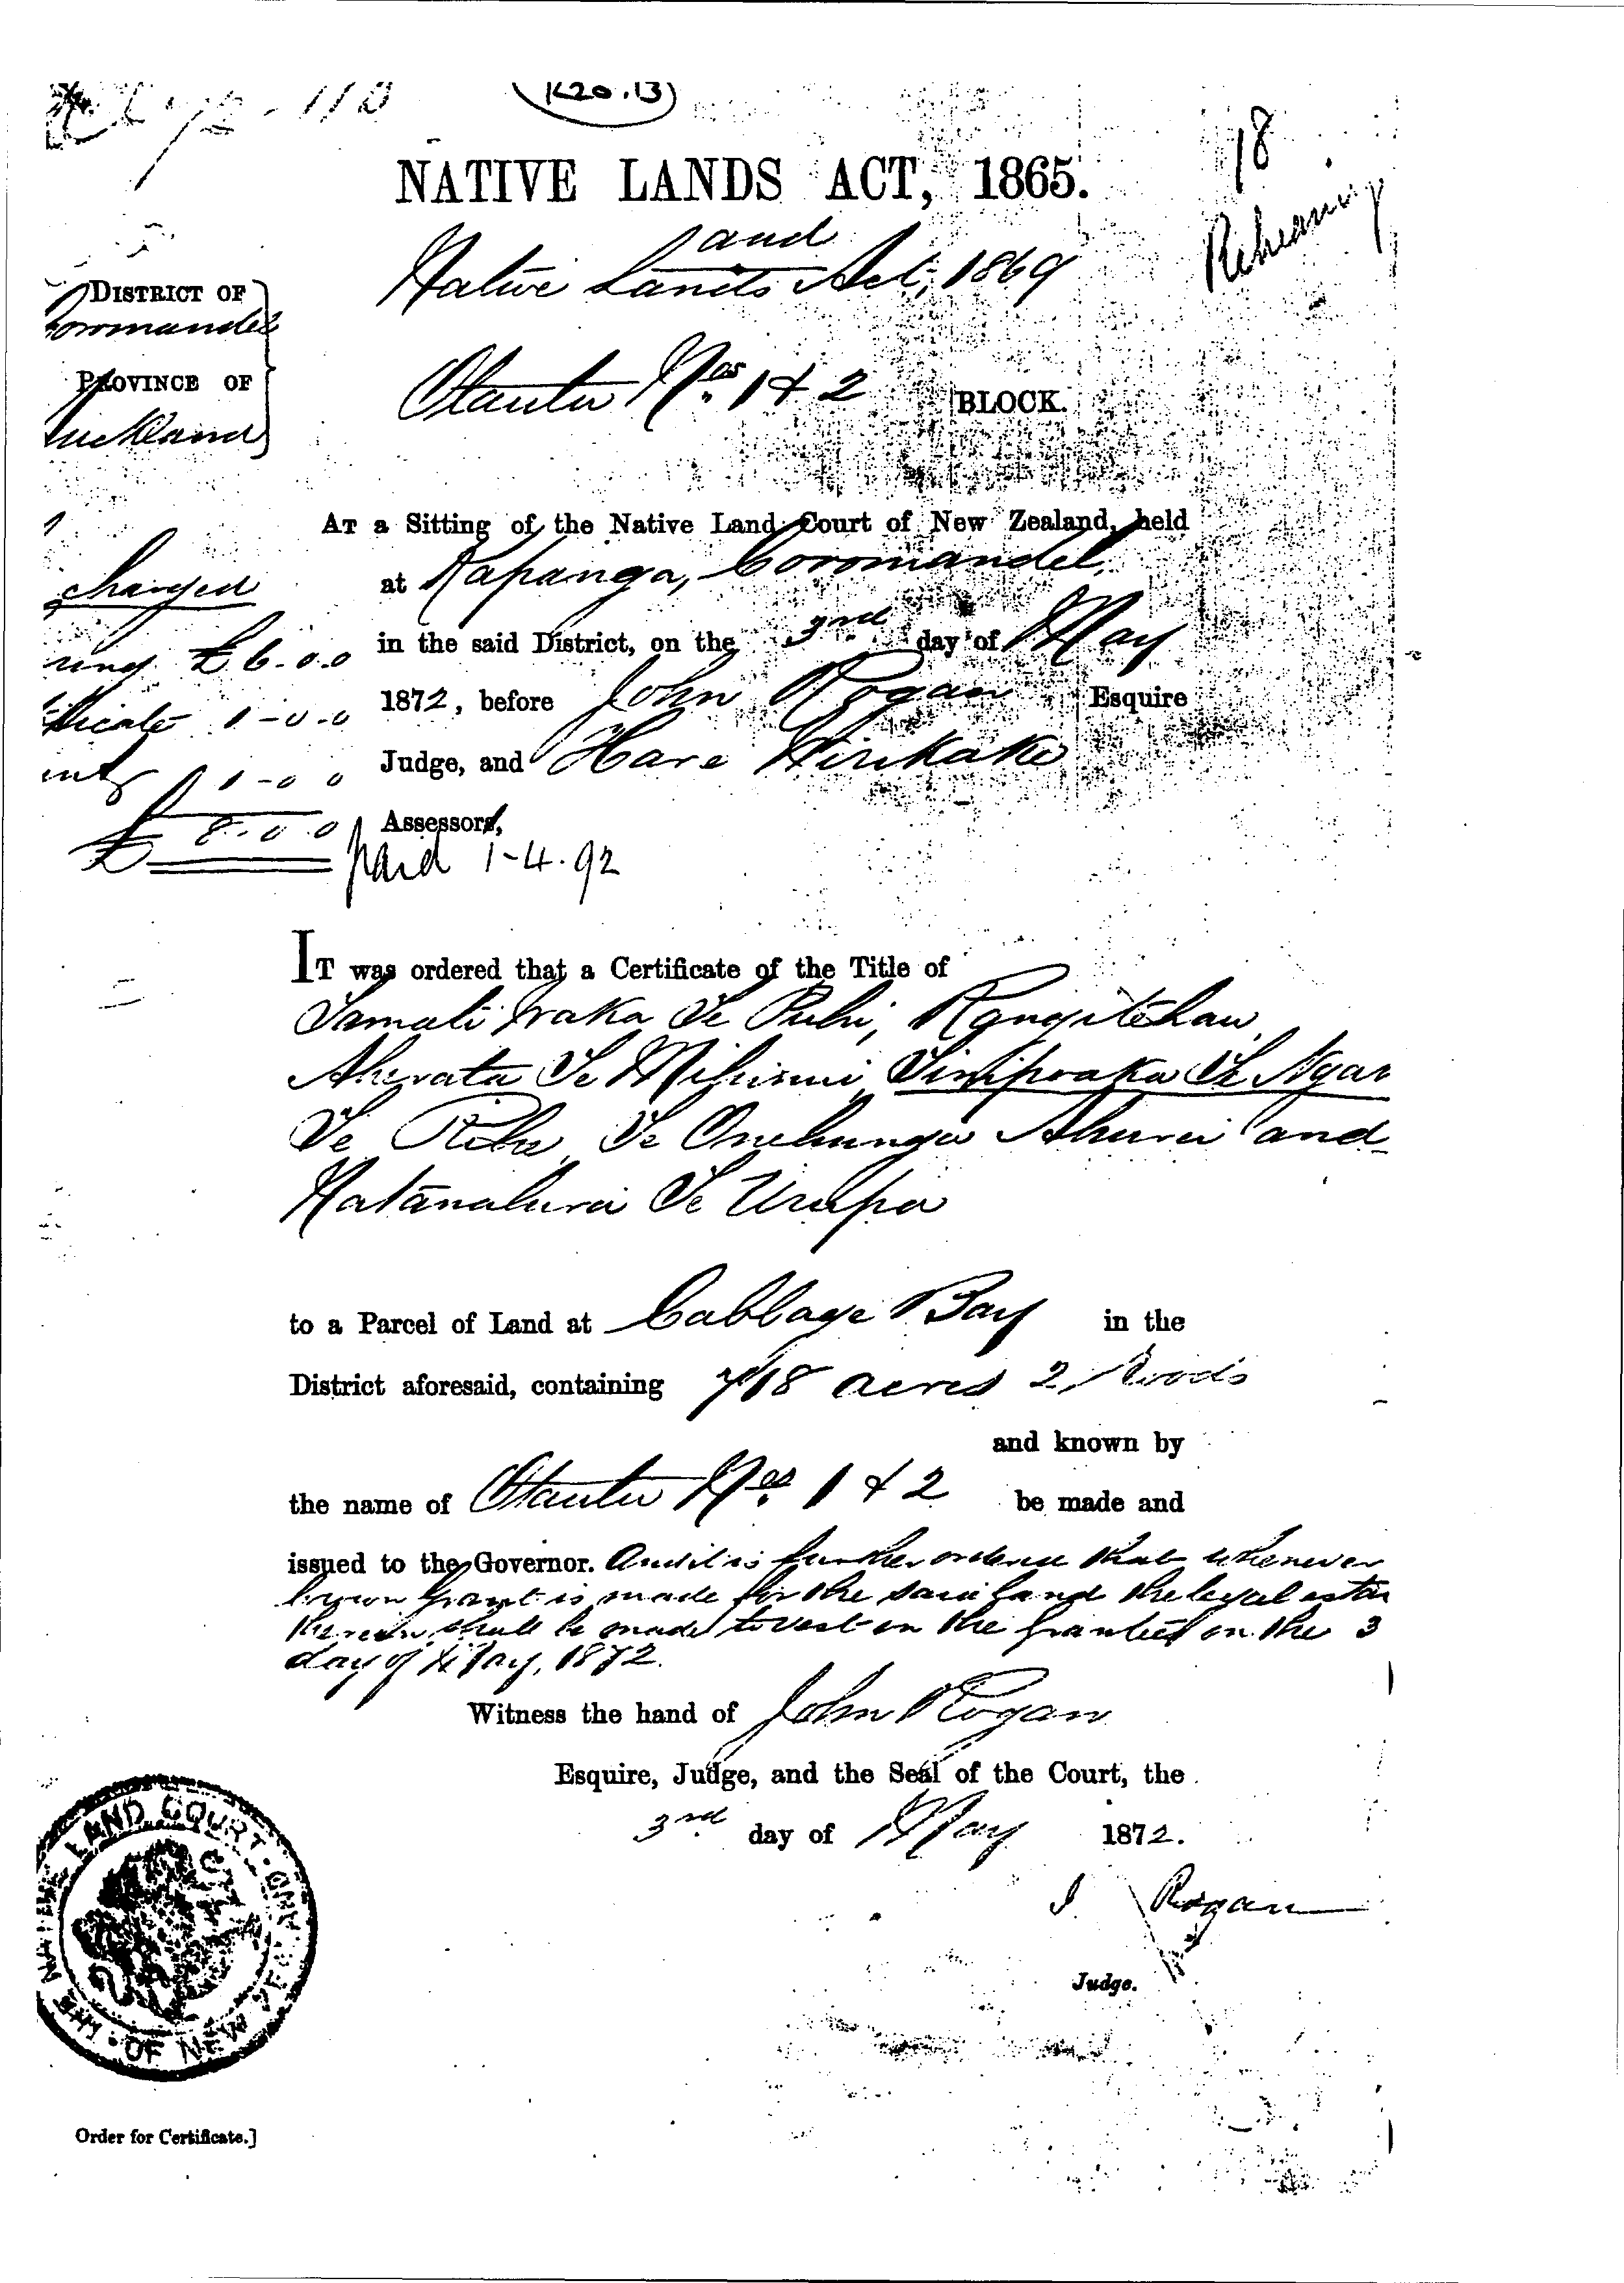 K20.13
18
Rehearing
NATIVE LANDS ACT, 1865.
and
Native Lands Act, 1869
DISTRICT OF
Coromandel
PROVINCE OF
Auckland
Otautu Nos. 1 & 2 BLOCK.
AT a Sitting of the Native Land Court of New Zealand, held
at Kapanga, Coromandel,
in the said District, on the 3rd day of May
1872, before John Rogan Esquire
Judge, and Hare Wirikake
Assessors,
charged
£6.0.0
1-0-0
1-0 0
£ 8.0 0
paid 1-4.92
IT was ordered that a Certificate of the Title of
Tamati Waka Te Puhi, Rangitehau
Aherata Te Mihinui Te Ngar
Te Onehunga Ahurei and
Te Urupa
to a Parcel of Land at Cabbage Bay in the
District aforesaid, containing 718 acres 2 Roods
and known by
the name of Otautu Nos. 1 & 2 be made and
issued to the Governor. And it is further ordered that whenever
Crown Grant is made for the said land the legal esta
therein shall be made to vest in the grantees on the 3
day of May, 1872.
Witness the hand of John Rogan
Esquire, Judge, and the Seal of the Court, the
3rd day of May 1872.
J Rogan
Judge.
THE NATIVE LAND COURT OF NEW ZEALAND
Order for Certificate.]